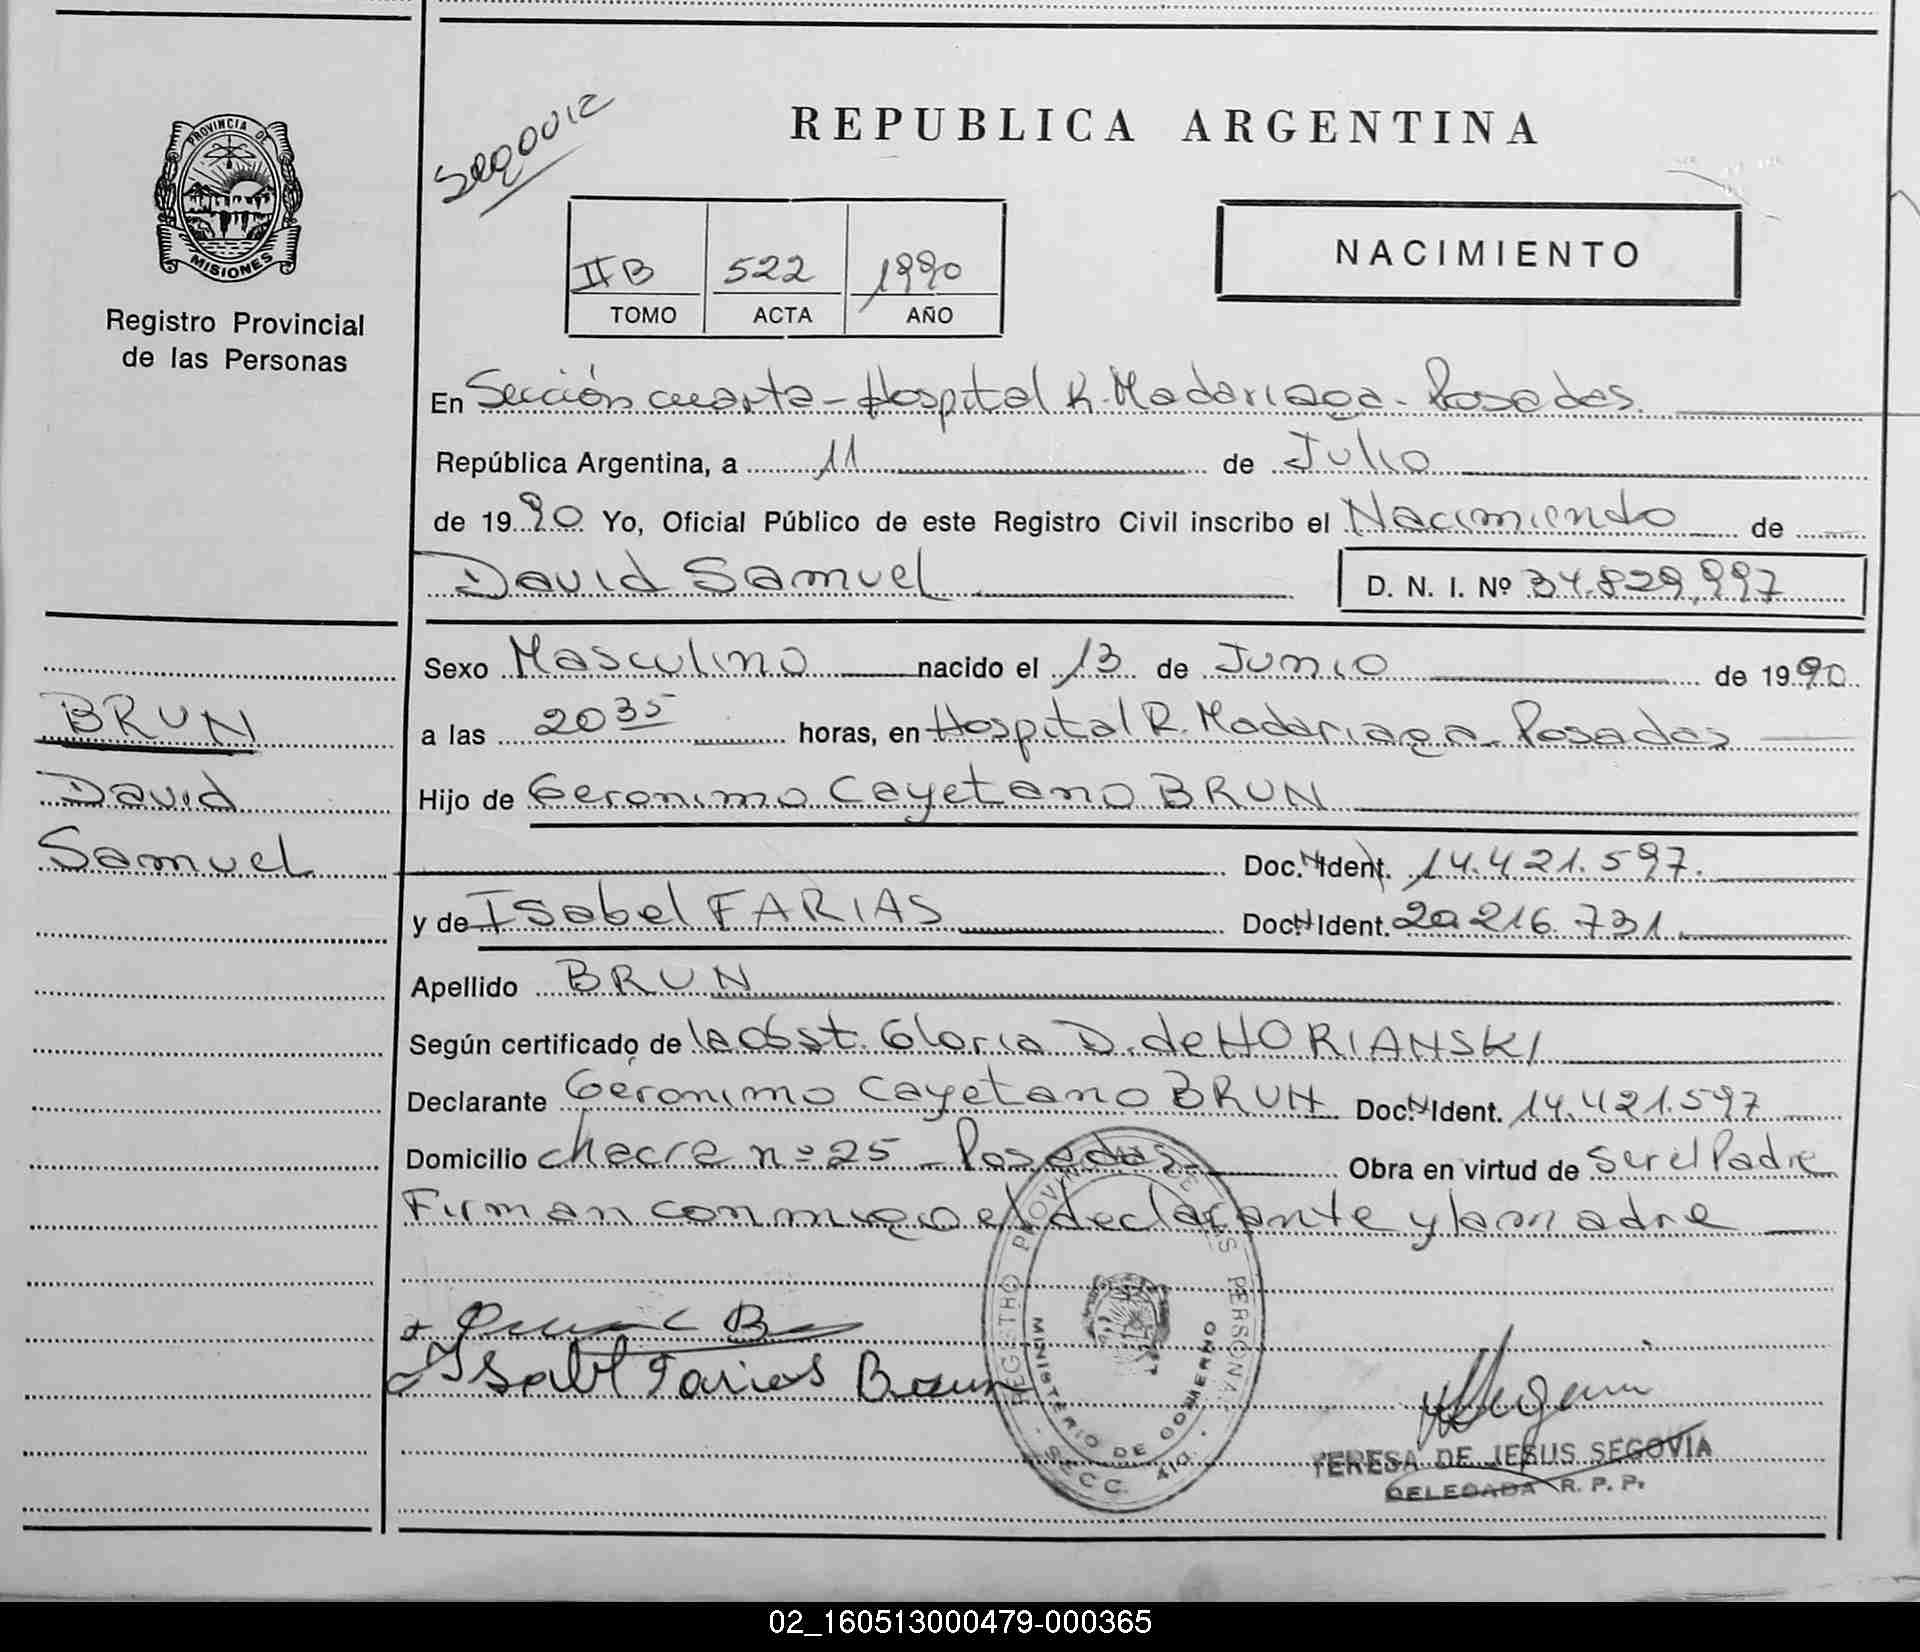 PROVINCIA DE
MISIONES
Registro Provincial
de las Personas
REPUBLICA ARGENTINA
IIB 522 1990
TOMO ACTA AÑO
NACIMIENTO
En Sección cuarta - Hospital R. Madariaga - Posadas.
República Argentina, a 11 de Julio
de 1990 Yo, Oficial Público de este Registro Civil inscribo el Nacimiendo de
David Samuel D. N. I. Nº 34.829.997
Sexo Masculino nacido el 13 de Junio de 1990
BRUN
David
Samuel
a las 20 35 horas, en Hospital R. Madariaga - Posadas
Hijo de Geronimo Cayetano BRUN
Doc. N Ident. 14.421.597.
y de Isabel FARIAS Doc. N Ident. 20 216.731.
Apellido BRUN
Según certificado de la Obst. Gloria D. de HORIANSKI
Declarante Geronimo Cayetano BRUN Doc. N Ident. 14.421.597
Domicilio Chacra nº 25 - Posadas - Obra en virtud de ser el Padre
Firman conmigo el declarante y la madre
Isabel Farias Brun
REGISTRO PROVINCIAL DE LAS PERSONAS
MINISTERIO DE GOBIERNO
SECC. 4ta.
TERESA DE JESUS SEGOVIA
DELEGADA R. P. P.
02_160513000479-000365